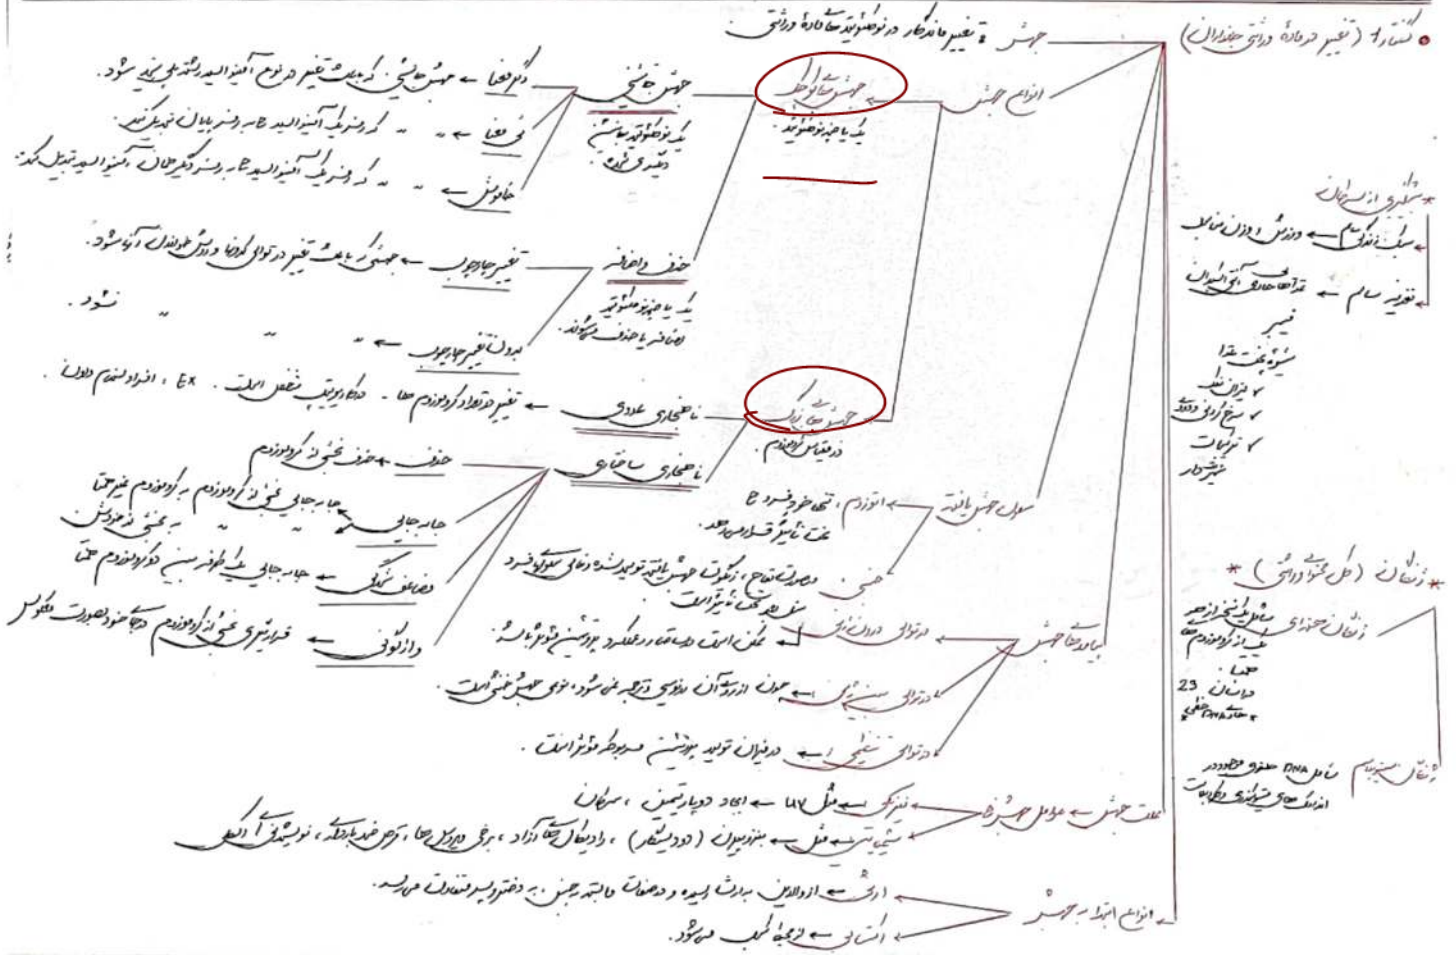 گفتار 1 (تغییر در مادهٔ وراثتی جانداران)
جهش : تغییر ماندگار در نوکلئوتیدهای مادهٔ وراثتی.
انواع جهش
جهش‌های کوچک
یک یا چند نوکلئوتید.
جهش جانشینی
یک نوکلئوتید جانشین دیگری شده.
دگرمعنا ← جهش جانشینی که باعث تغییر در نوع آمینواسید رشته پلی پپتید شود.
بی معنا ← " " که رمز یک آمینواسید را به رمز پایان تبدیل کند.
خاموش ← " " که رمز یک آمینواسید را به رمز دیگر همان آمینواسید تبدیل کند.
حذف و اضافه
یک یا چند نوکلئوتید
اضافه یا حذف می‌شوند.
تغییر چارچوب ← جهشی که باعث تغییر در توالی کدون‌ها و شود.
بدون تغییر چارچوب ← " " " " نشود.
جهش‌های بزرگ
در مقیاس کروموزوم.
ناهنجاری عددی ← تغییر در تعداد کروموزوم ها - در کاریوتیپ مشخص است. EX : افراد نشانگان داون.
ناهنجاری ساختاری
حذف ← حذف بخشی از کروموزوم
جابه‌جایی جابه جایی بخشی از کروموزوم به کروموزوم غیرهمتا
" " به بخشی از خودش.
مضاعف شدگی ← جابه جایی یک طرفه بین دو کروموزوم همتا
واژگونی ← قرارگیری بخشی از کروموزوم در جای خود به صورت معکوس
سلول جهش یافته
اتوزوم : تنها خود فرد را
تحت تأثیر قرار می‌دهد.
جنسی درصورت لقاح، زیگوت جهش یافته تولید شده و تمامی سلولهای فرد
تحت تأثیر است.
پیامدهای جهش
در توالی درون ژنی
ممکن است در ساختار و عملکرد پروتئین مؤثر باشد.
در توالی بین ژنی ← چون از روی آن رونویسی و ترجمه نمی شود، نوعی جهش خنثی است.
در توالی تنظیمی ← در میزان تولید پروتئین مربوطه مؤثر است.
علت جهش ← عوامل جهش‌زا
فیزیکی ← مثل UV ← ایجاد دوپار تیمین ، سرطان
شیمیایی ← مثل ← بنزوپیرن (دود سیگار) ، رادیکال‌های آزاد ، برخی ویروس ها ، قرص ضدبارداری ، نوشیدنی الکلی
انواع ابتلا به جهش
ارثی ← از والدین به ارث رسیده و در صفات وابسته به جنس، به دختر و پسر متفاوت می‌رسد.
اکتسابی ← از محیط کسب می شود.
* پیشگیری از سرطان
سبک زندگی سالم ← ورزش و وزن مناسب
تغذیه سالم ← غذاهای حاوی آنتی اکسیدان
فیبر
شیوه پخت غذا
✓ میزان نمک
✓ سرخ کردنی و دودی
✓ ترکیبات
نیتریت‌دار
* ژنگان (کل محتوای وراثتی) *
ژنگان هسته‌ای
شامل یک نسخه از هر
یک از کروموزوم های
همتا.
در انسان 23
ژنگان سیتوپلاسم
شامل DNA حلقوی موجود در
اندامک های میتوکندری و کلروپلاست